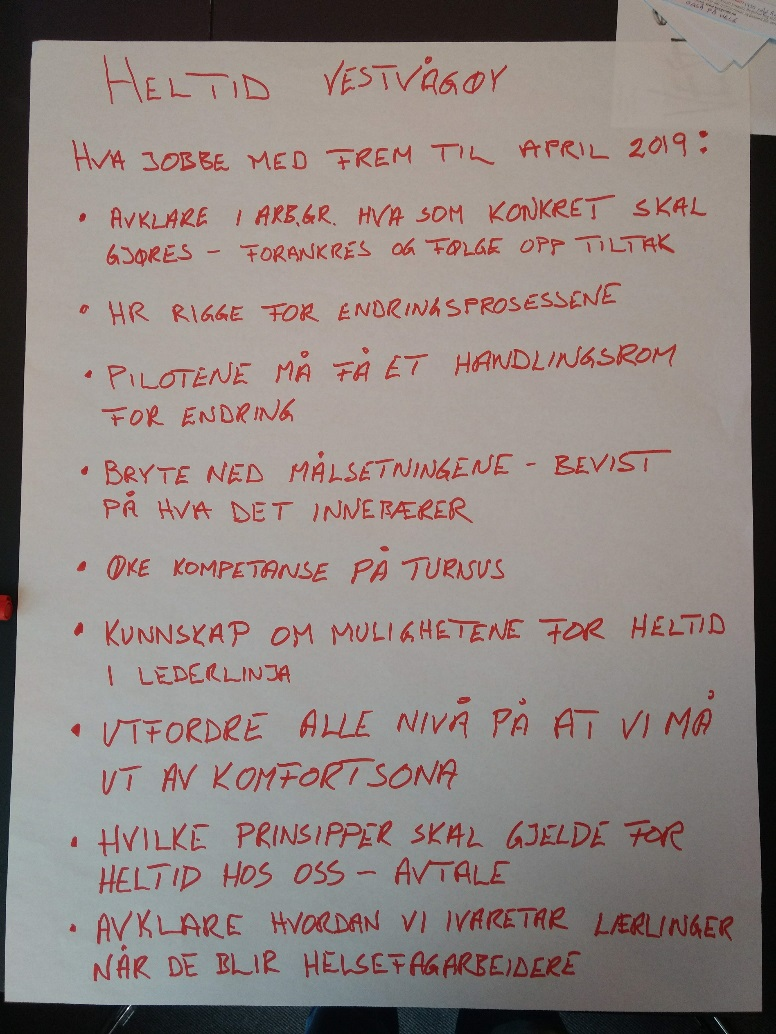 HELTID VESTVÅGØY
HVA JOBBE MED FREM TIL APRIL 2019:
• AVKLARE I ARB.GR. HVA SOM KONKRET SKAL
GJØRES - FORANKRES OG FØLGE OPP TILTAK
• HR RIGGE FOR ENDRINGSPROSESSENE
• PILOTENE MÅ FÅ ET HANDLINGSROM
FOR ENDRING
• BRYTE NED MÅLSETNINGENE - BEVIST
PÅ HVA DET INNEBÆRER
• ØKE KOMPETANSE PÅ TURNUS
• KUNNSKAP OM MULIGHETENE FOR HELTID
I LEDERLINJA
• UTFORDRE ALLE NIVÅ PÅ AT VI MÅ
UT AV KOMFORTSONA
• HVILKE PRINSIPPER SKAL GJELDE FOR
HELTID HOS OSS - AVTALE
• AVKLARE HVORDAN VI IVARETAR LÆRLINGER
NÅR DE BLIR HELSEFAGARBEIDERE